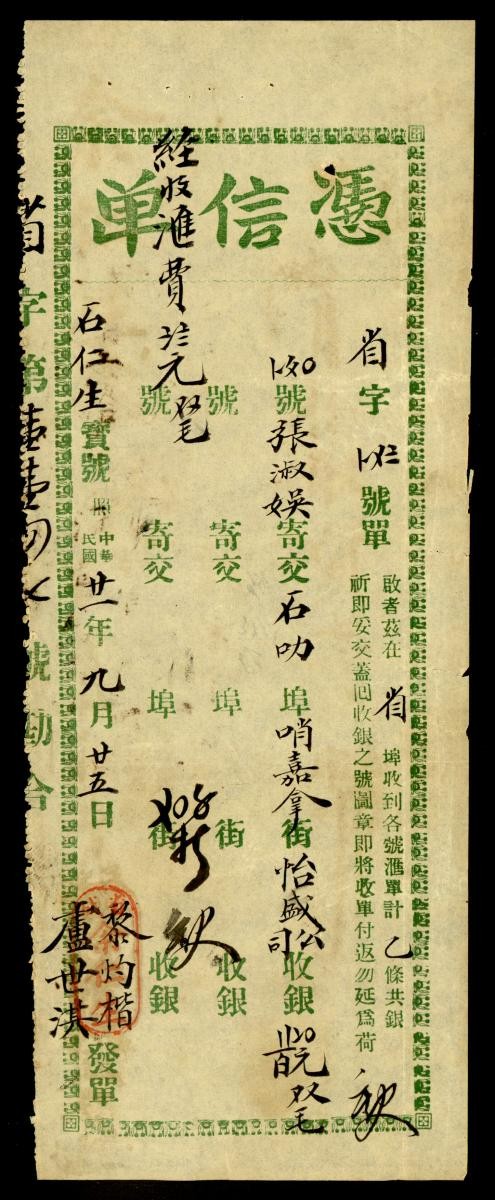 憑信單
省字 號單
啟者茲在省埠收到各號滙單計乙條共銀
祈即妥交蓋回收銀之號圖章即將收單付返勿延為荷
號張淑娛寄交石叻埠哨嘉拿街怡盛公司收銀
號 寄交 埠 街 收銀
號 寄交 埠 街 收銀
經收滙費 元
石仁生寶號照
中華民國廿一年九月廿五日
黎灼楷
盧世淇
發單
省字第壹壹 號勘合